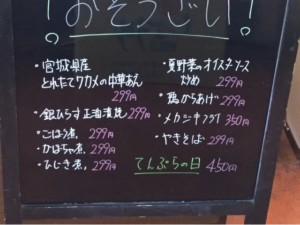 ！おそうざい！
・宮城県産
とれたてワカメの中華あん
299円
・銀ひらす正油漬焼 299円
・ごぼう煮 299円
・かぼちゃ煮 299円
・ひじき煮 299円
・夏野菜のオイスターソース
炒め 299円
・鶏からあげ 299円
・メカジキフライ 350円
・やきそば 299円
てんぷらの日 450円